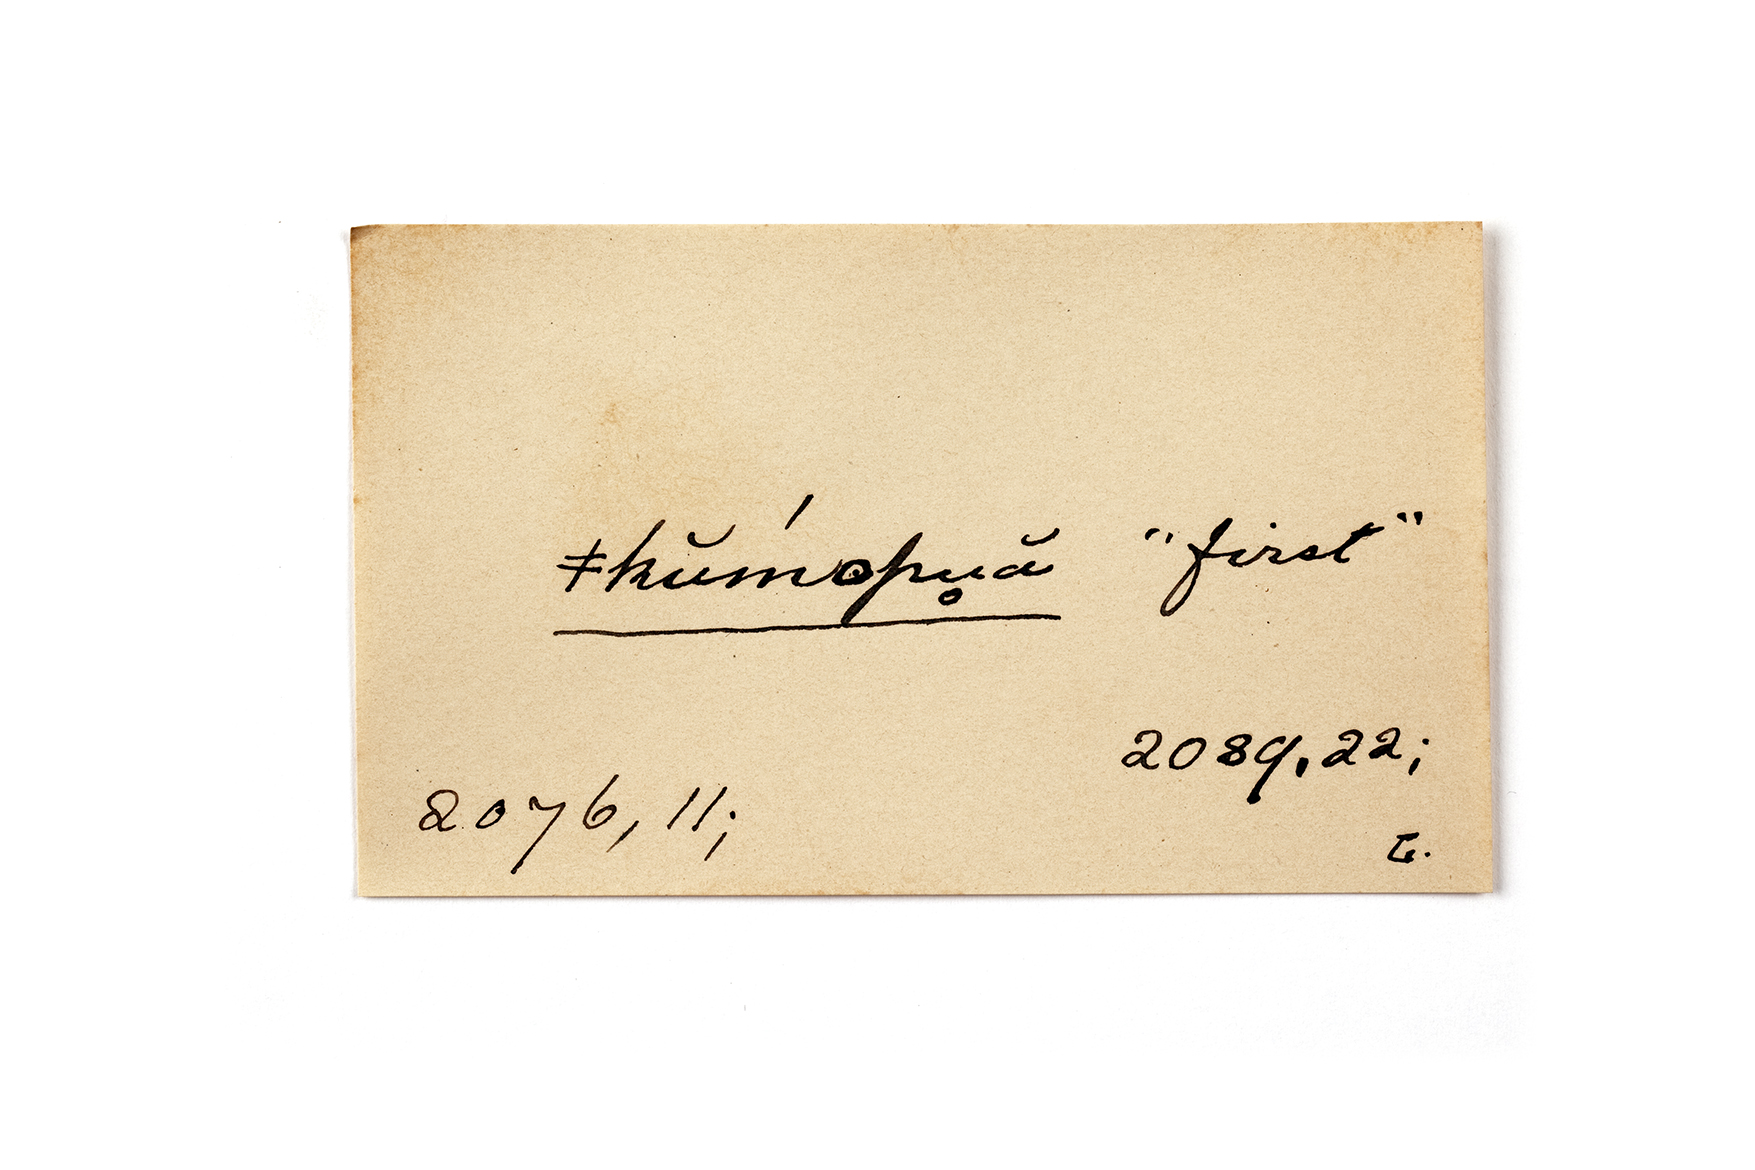 ǂkŭḿop̣u̥ă "first"
2089,22;
2076,11;
L.